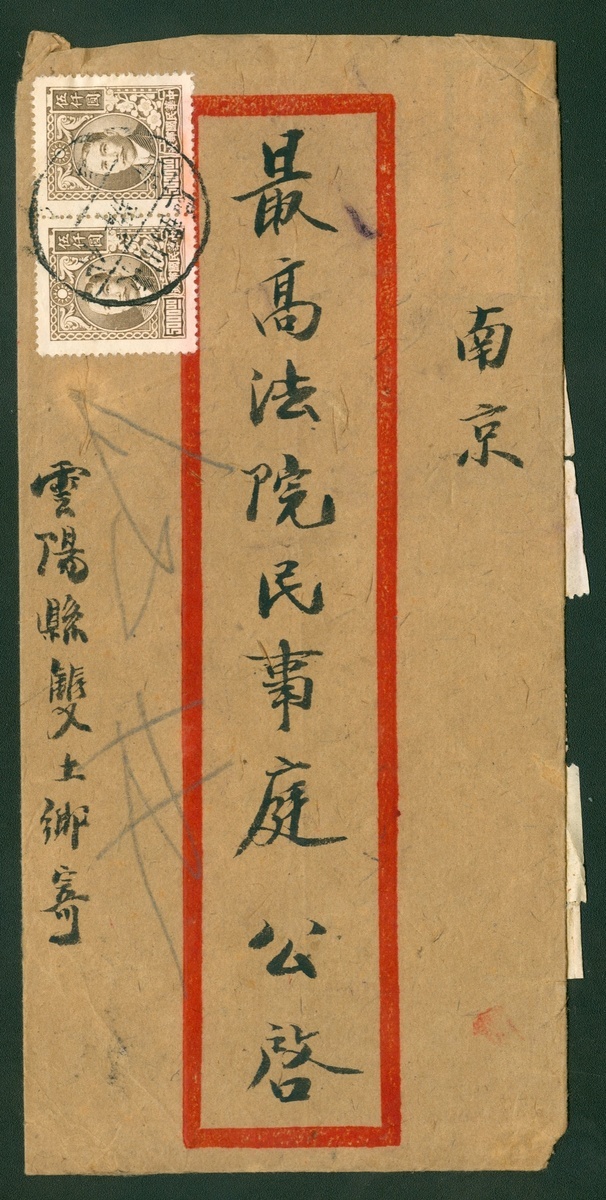 南京
最高法院民事庭 公啓
雲陽縣雙土鄉寄
伍仟圓
5000
伍仟圓
5000